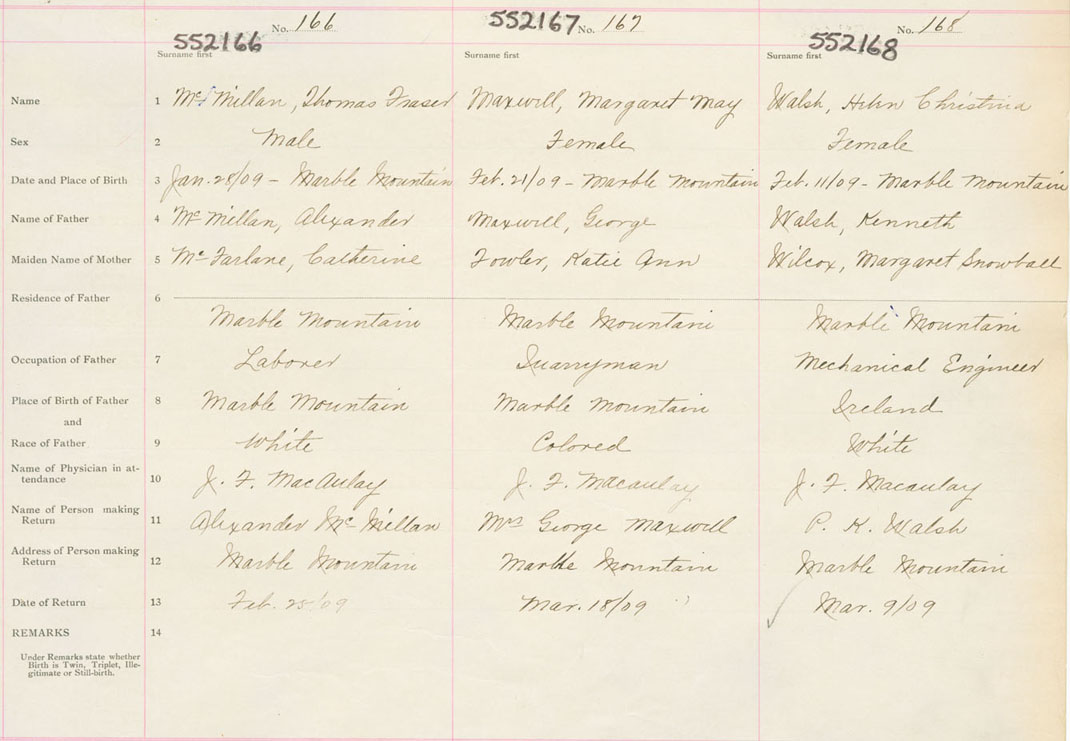 No. 166 552167 No. 167 No. 168
552166 552168
Surname first Surname first Surname first
Name 1 McMillan, Thomas Fraser Maxwell, Margaret May Walsh, Helen Christina
Sex 2 Male Female Female
Date and Place of Birth 3 Jan. 28/09 - Marble Mountain Feb. 21/09 - Marble Mountain Feb. 11/09 - Marble Mountain
Name of Father 4 McMillan, Alexander Maxwell, George Walsh, Kenneth
Maiden Name of Mother 5 McFarlane, Catherine Fowler, Katie Ann Wilcox, Margaret Snowball
Residence of Father 6
Marble Mountain Marble Mountain Marble Mountain
Occupation of Father 7 Laborer Quarryman Mechanical Engineer
Place of Birth of Father 8 Marble Mountain Marble Mountain Ireland
and
Race of Father 9 White Colored White
Name of Physician in at-
tendance 10 J. F. MacAulay J. F. Macaulay J. F. Macaulay
Name of Person making
Return 11 Alexander McMillan Mrs George Maxwell P. K. Walsh
Address of Person making
Return 12 Marble Mountain Marble Mountain Marble Mountain
Date of Return 13 Feb. 25/09 Mar. 18/09 Mar. 9/09
REMARKS 14
Under Remarks state whether
Birth is Twin, Triplet, Ille-
gitimate or Still-birth.